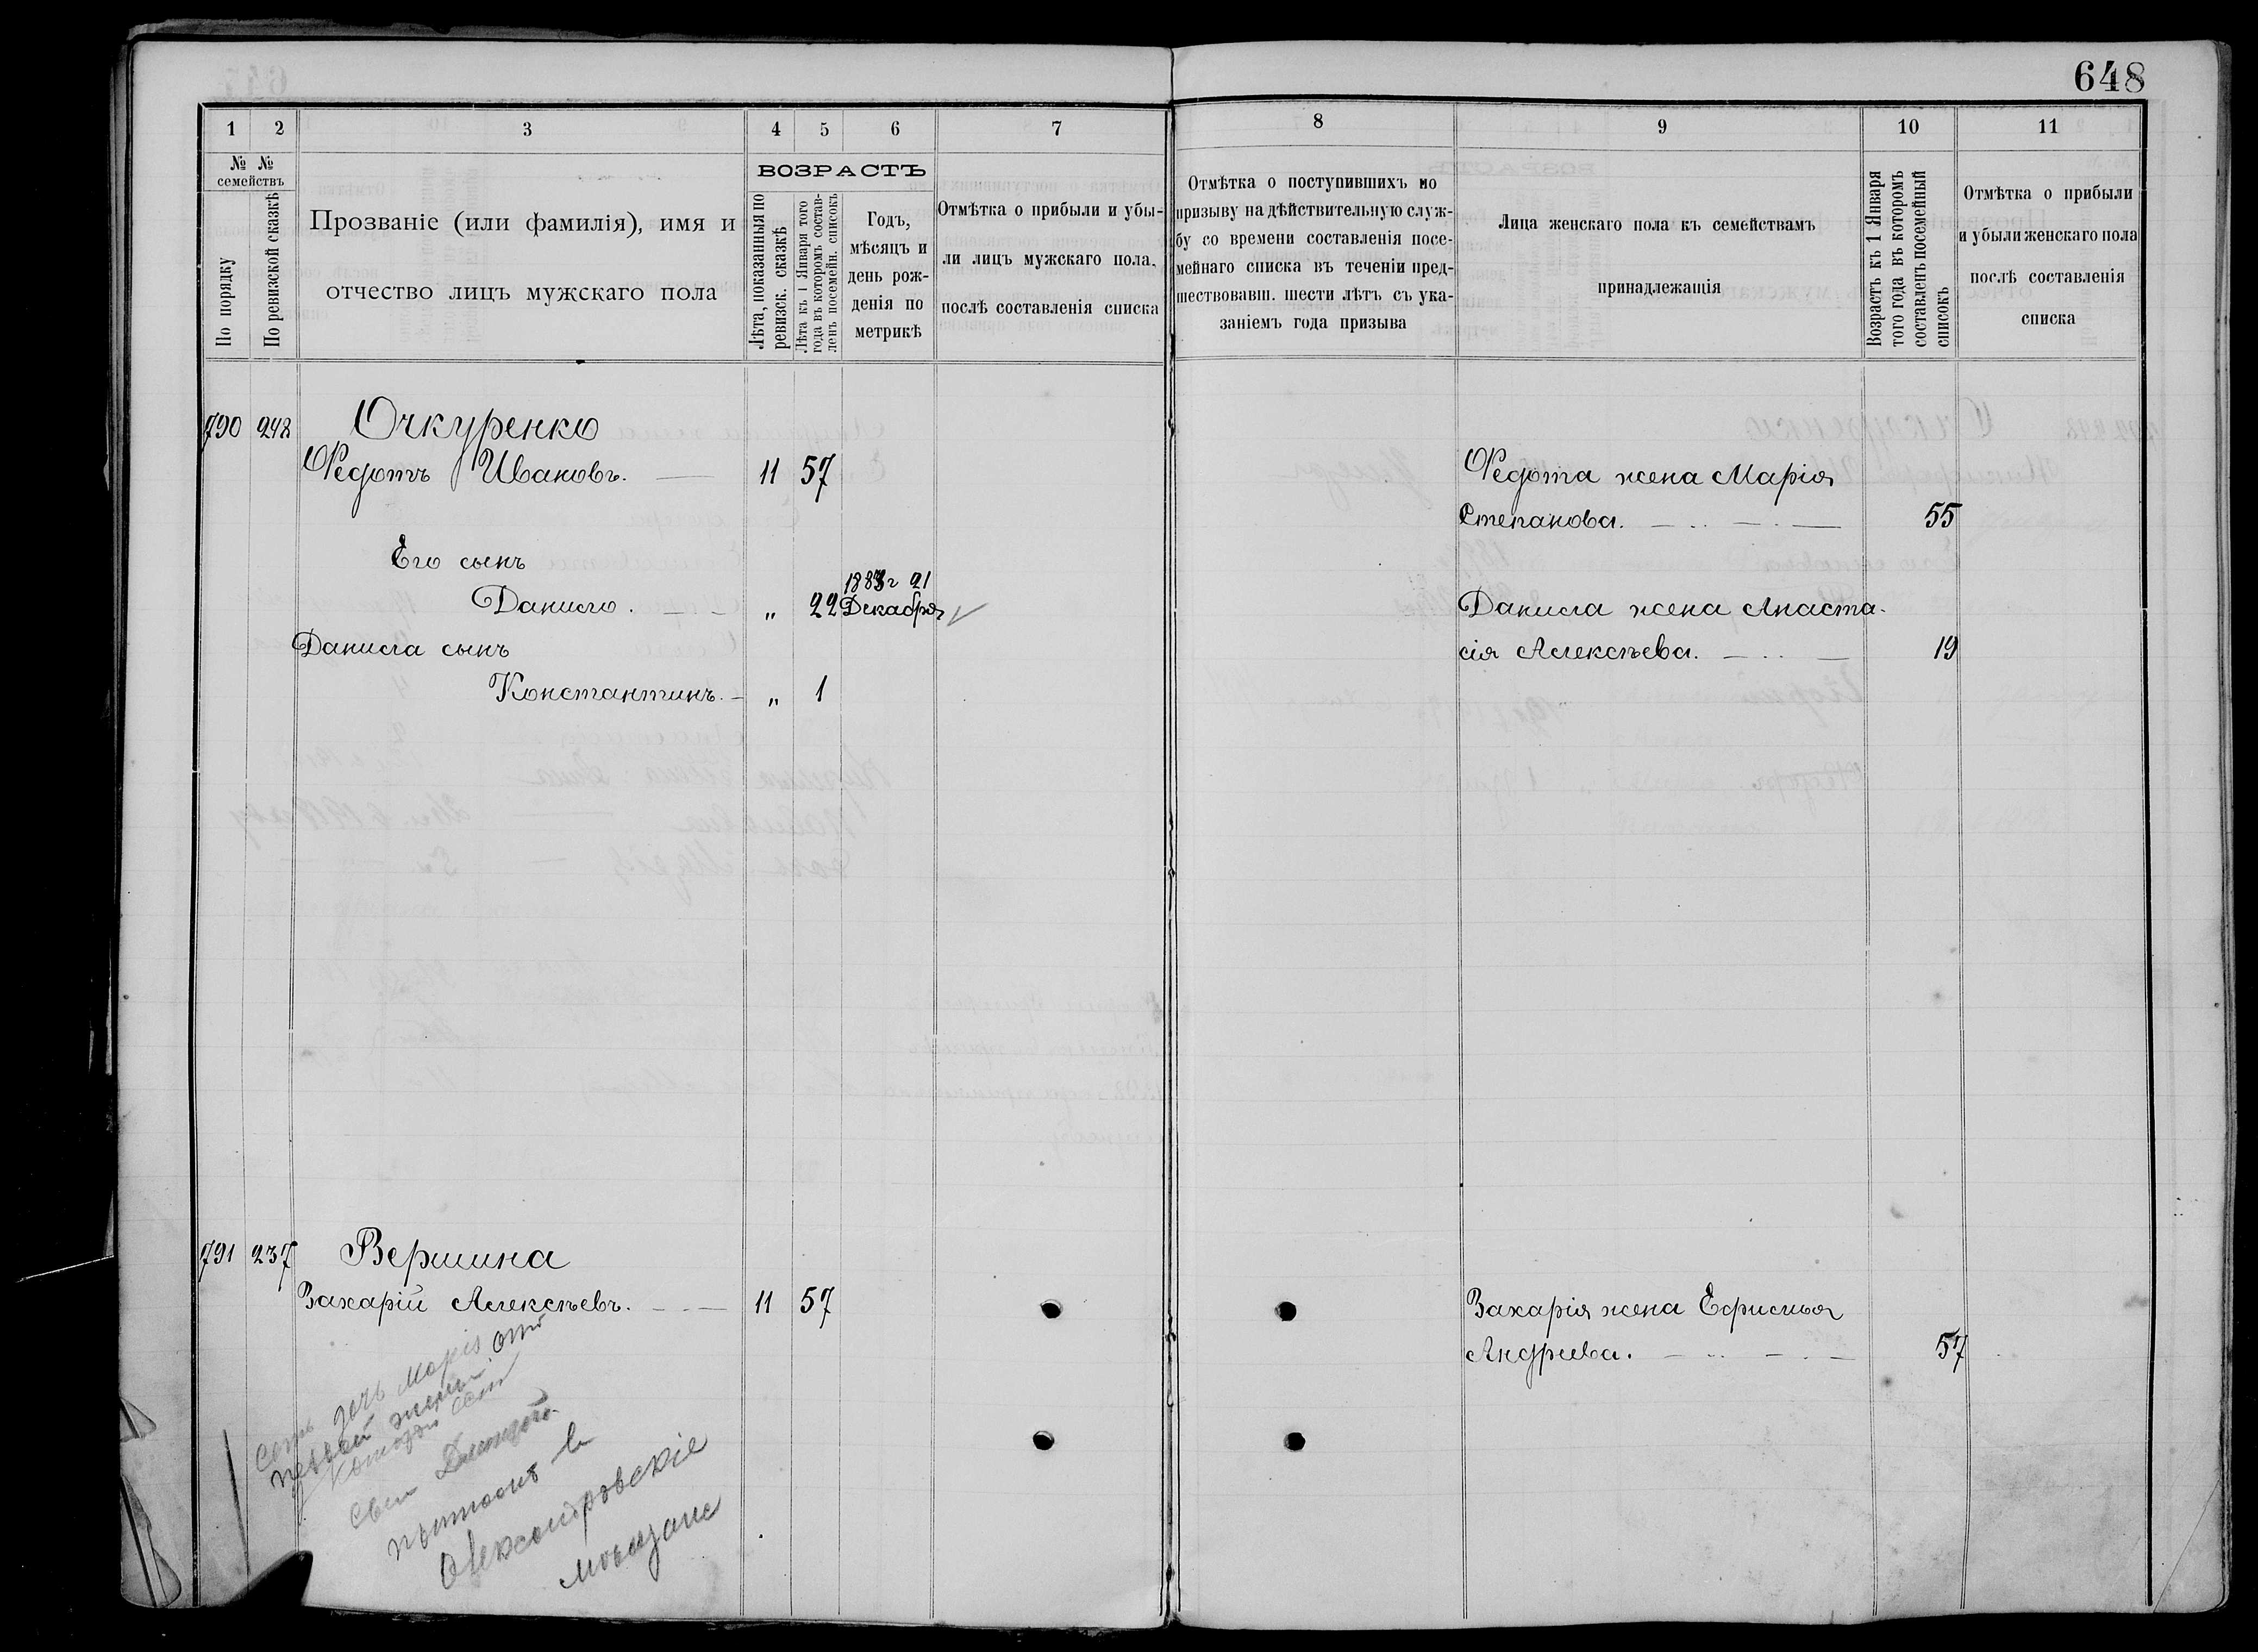 648
1 2 3 4 5 6 7
8 9 10 11
№ № семействъ
По порядку
По ревизской сказкѣ
Прозваніе (или фамилія), имя и
отчество лицъ мужскаго пола
ВОЗРАСТЪ
Лѣта, показанныя по
ревизск. сказкѣ
Лѣта къ 1 Января того
года въ которомъ состав-
ленъ посемейн. списокъ
Годъ,
мѣсяцъ и
день рож-
денія по
метрикѣ
Отмѣтка о прибыли и убы-
ли лицъ мужскаго пола,
послѣ составленія списка
Отмѣтка о поступившихъ по
призыву на дѣйствительную служ-
бу со времени составленія посе-
мейнаго списка въ теченіи пред-
шествовавш. шести лѣтъ съ ука-
заніемъ года призыва
Лица женскаго пола къ семействамъ
принадлежащія
Возрастъ къ 1 Января
того года въ которомъ
составленъ посемейный
списокъ
Отмѣтка о прибыли
и убыли женскаго пола
послѣ составленія
списка
790 248 Очкуренко
Ѳедотъ Ивановъ. 11 57
Ѳедота жена Марія
Степанова. 55
Его сынъ
Данило. „ 22 Декабря
21
Данила жена Анаста-
сія Алексѣева. 19
Данила сынъ
Константинъ. „ 1
791 237 Вершина
Захарій Алексѣевъ. 11 57
Захарія жена Ефимья
Андреева. 57
дочь Марія отъ
первой жены